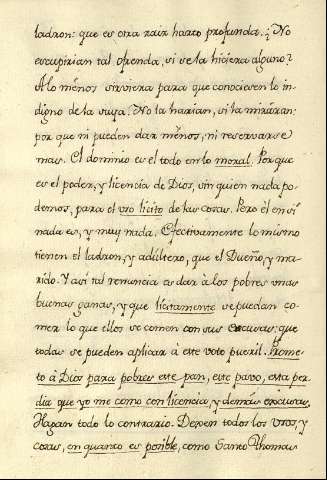 ladron: que es otra raiz harto profunda. ¿No
escupirian tal ofrenda, si se la hiciera alguno?
A lo menos sirviera para que conociesen lo in-
digno de la suya. No la harian, si la miráran:
por que ni pueden dar menos, ni reservarse
mas. El dominio es el todo en lo moral. Porque
es el poder, y licencia de Dios, sin quien nada po-
demos, para el uso licito de las cosas. Pero él en si
nada es, y muy nada. Efectivamente lo mismo
tienen el ladron, y adúltero, que el Dueño, y ma-
rido. Y asi tal renuncia es dar à los pobres unas
buenas ganas, y que licitamente se puedan co-
mer lo que ellos se comen con sus excusas: que
todas se pueden aplicar à este voto pueril. Prome-
to à Dios para pobres este pan, este pavo, esta per-
diz que yo me como con licencia, y demás excusas.
Hagan todo lo contrario. Dexen todos los usos, y
cosas, en quanto es posible, como Santo Thomas